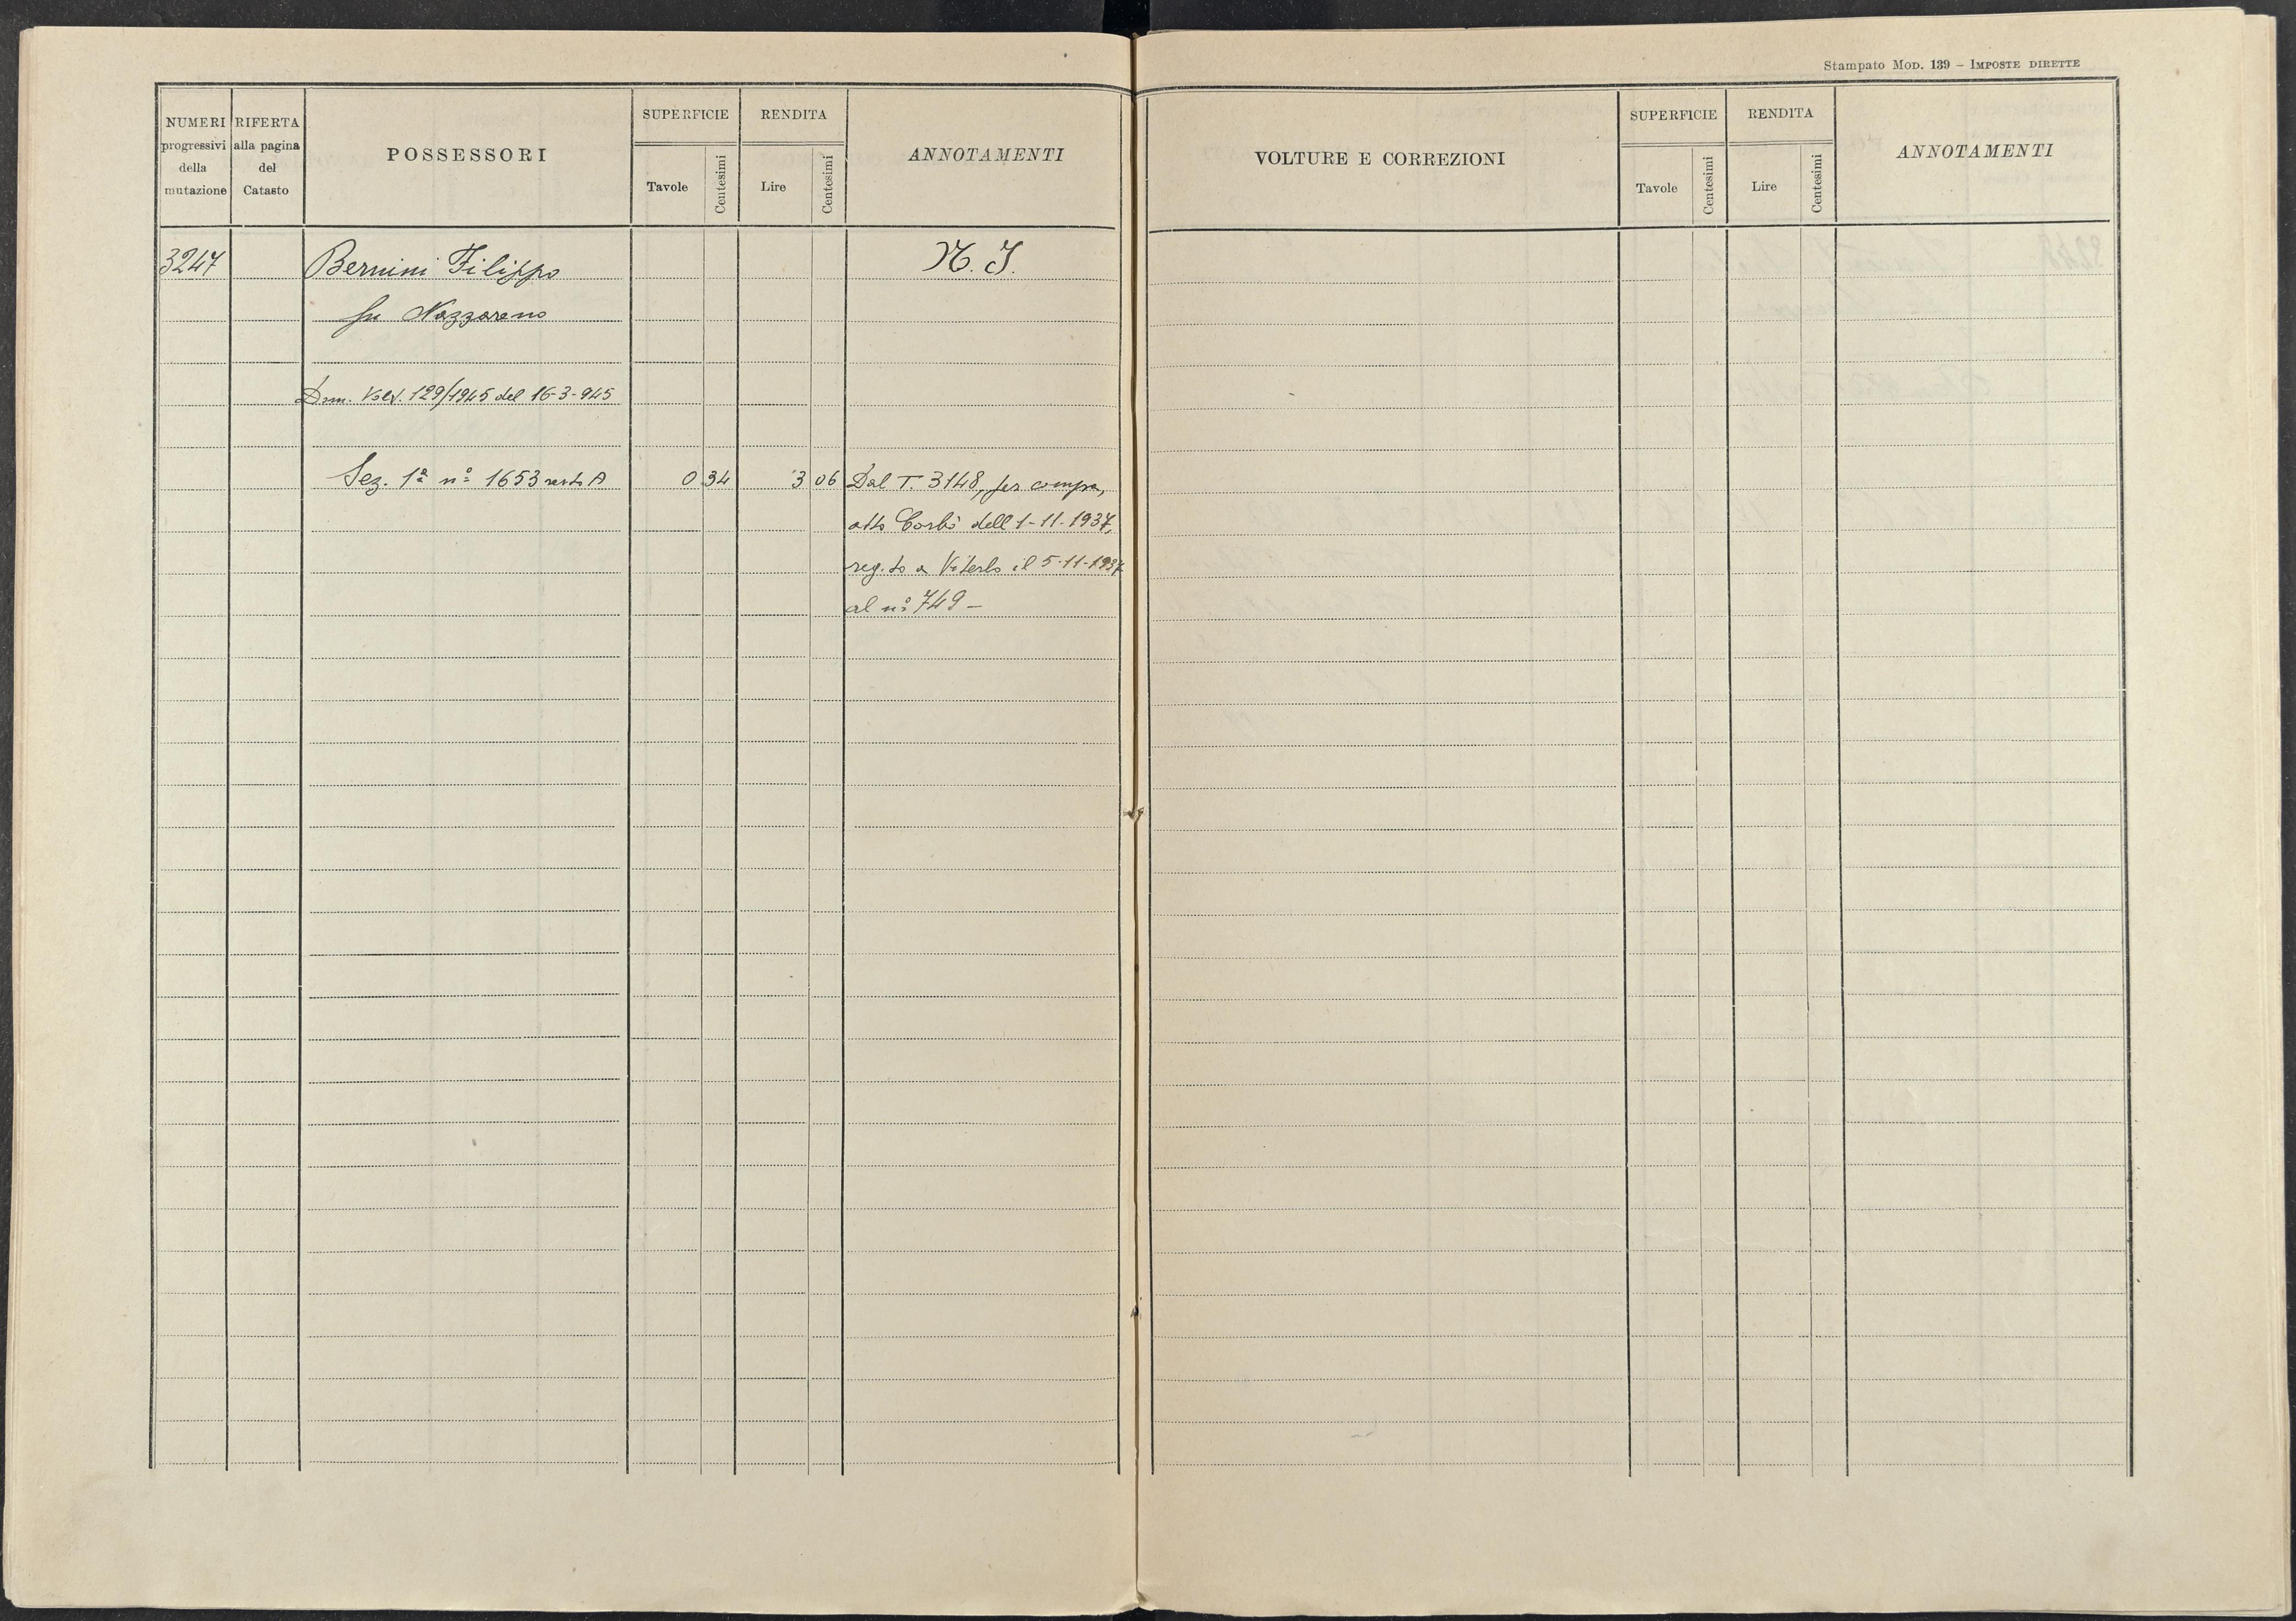 Stampato Mod. 139 – Imposte dirette
NUMERI progressivi della mutazione
RIFERTA alla pagina del Catasto
POSSESSORI
SUPERFICIE
Tavole
Centesimi
RENDITA
Lire
Centesimi
ANNOTAMENTI
VOLTURE E CORREZIONI
SUPERFICIE
Tavole
Centesimi
RENDITA
Lire
Centesimi
ANNOTAMENTI
3247 Bernini Filippo
fu Nazzareno
129/1945 del 16-3-945
Sez. 1ª nº 1653 resto A 0 34 3 06 Dal T. 3148, per compra,
atto dell 1-11-1937,
reg.to a Viterbo il 5-11-1937
al nº 749 –